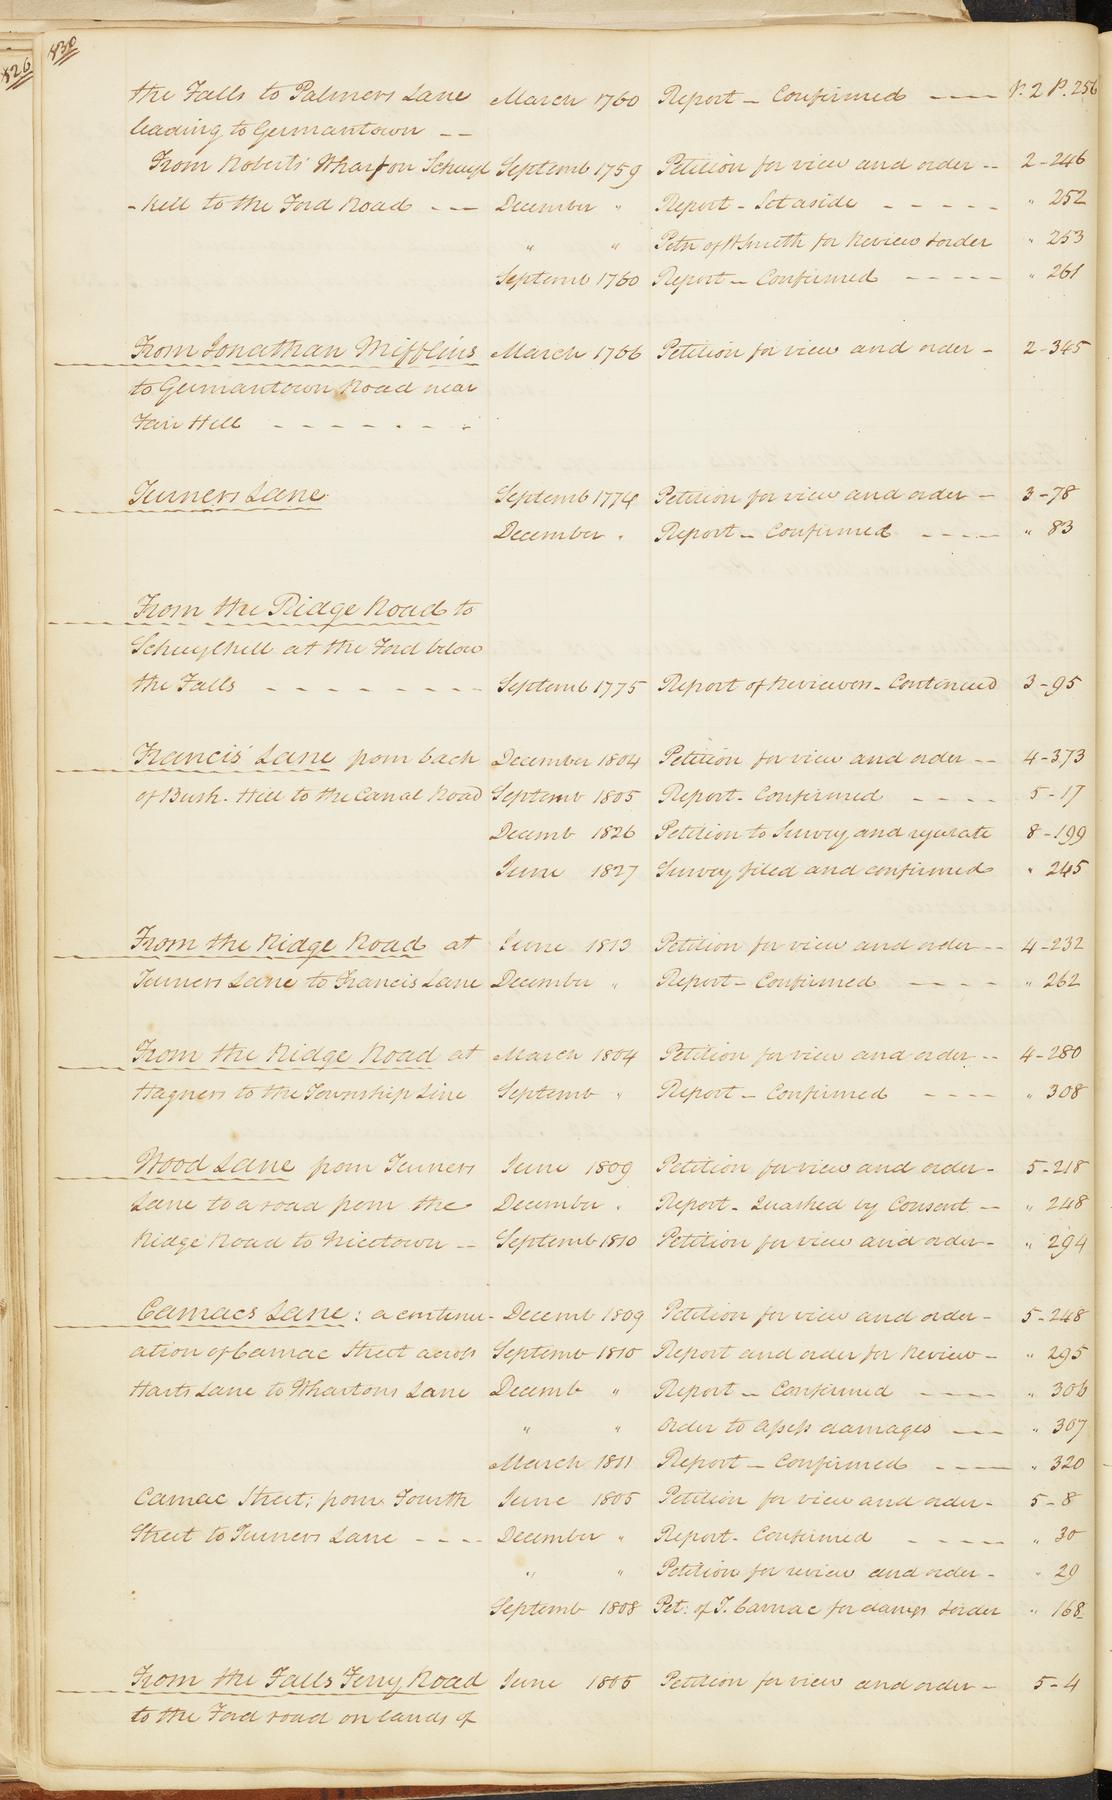 430
426
the Falls to Palmers Lane March 1760 Report - Confirmed ---- V. 2 P. 256
leading to Germantown --
From Roberts' Wharf on Schuyl Septemb 1759 Petition for view and order -- 2-246
-kill to the Ford Road --- December " Report - Set aside ----- " 252
" " Petn of for Review & order " 253
Septemb 1760 Report - Confirmed ----- " 261
From Jonathan Mifflins March 1766 Petition for view and order - 2-345
to Germantown Road near
Fair Hill -------
Turners Lane Septemb 1774 Petition for view and order - 3-78
December " Report - Confirmed ---- " 83
From the Ridge Road to
Schuylkill at the Ford below
the Falls -------- Septemb 1775 Report of Reviewers - Continued 3-95
Francis' Lane from back December 1804 Petition for view and order -- 4-373
of Bush-Hill to the Canal Road Septemb 1805 Report - Confirmed ---- 5-17
Decemb 1826 Petition to Survey and regulate 8-199
June 1827 Survey filed and confirmed " 245
From the Ridge Road at June Petition for view and order -- 4-232
Turners Lane to Francis Lane December " Report - Confirmed ---- " 262
From the Ridge Road at March 1804 Petition for view and order -- 4-280
Hagners to the Township Line Septemb " Report - Confirmed ---- " 308
Wood Lane from Turners June 1809 Petition for view and order - 5-218
Lane to a road from the December " Report - Quashed by Consent -- " 248
Ridge Road to Nicetown -- Septemb 1810 Petition for view and order - " 294
Camacs Lane : a continu- Decemb 1809 Petition for view and order - 5-248
ation of Camac Street across Septemb 1810 Report and order for Review - " 295
Harts Lane to Whartons Lane Decemb " Report - Confirmed ---- " 306
" " Order to Assess damages --- " 307
March 1811 Report - Confirmed ---- " 320
Camac Street; from Fourth June 1805 Petition for view and order - 5-8
Street to Turners Lane ---- December " Report - Confirmed ---- " 30
" " Petition for review and order - " 29
Septemb 1808 Pet: of T. Camac for damgs & order " 168
From the Falls Ferry Road June 1805 Petition for view and order - 5-4
to the Ford road on lands of